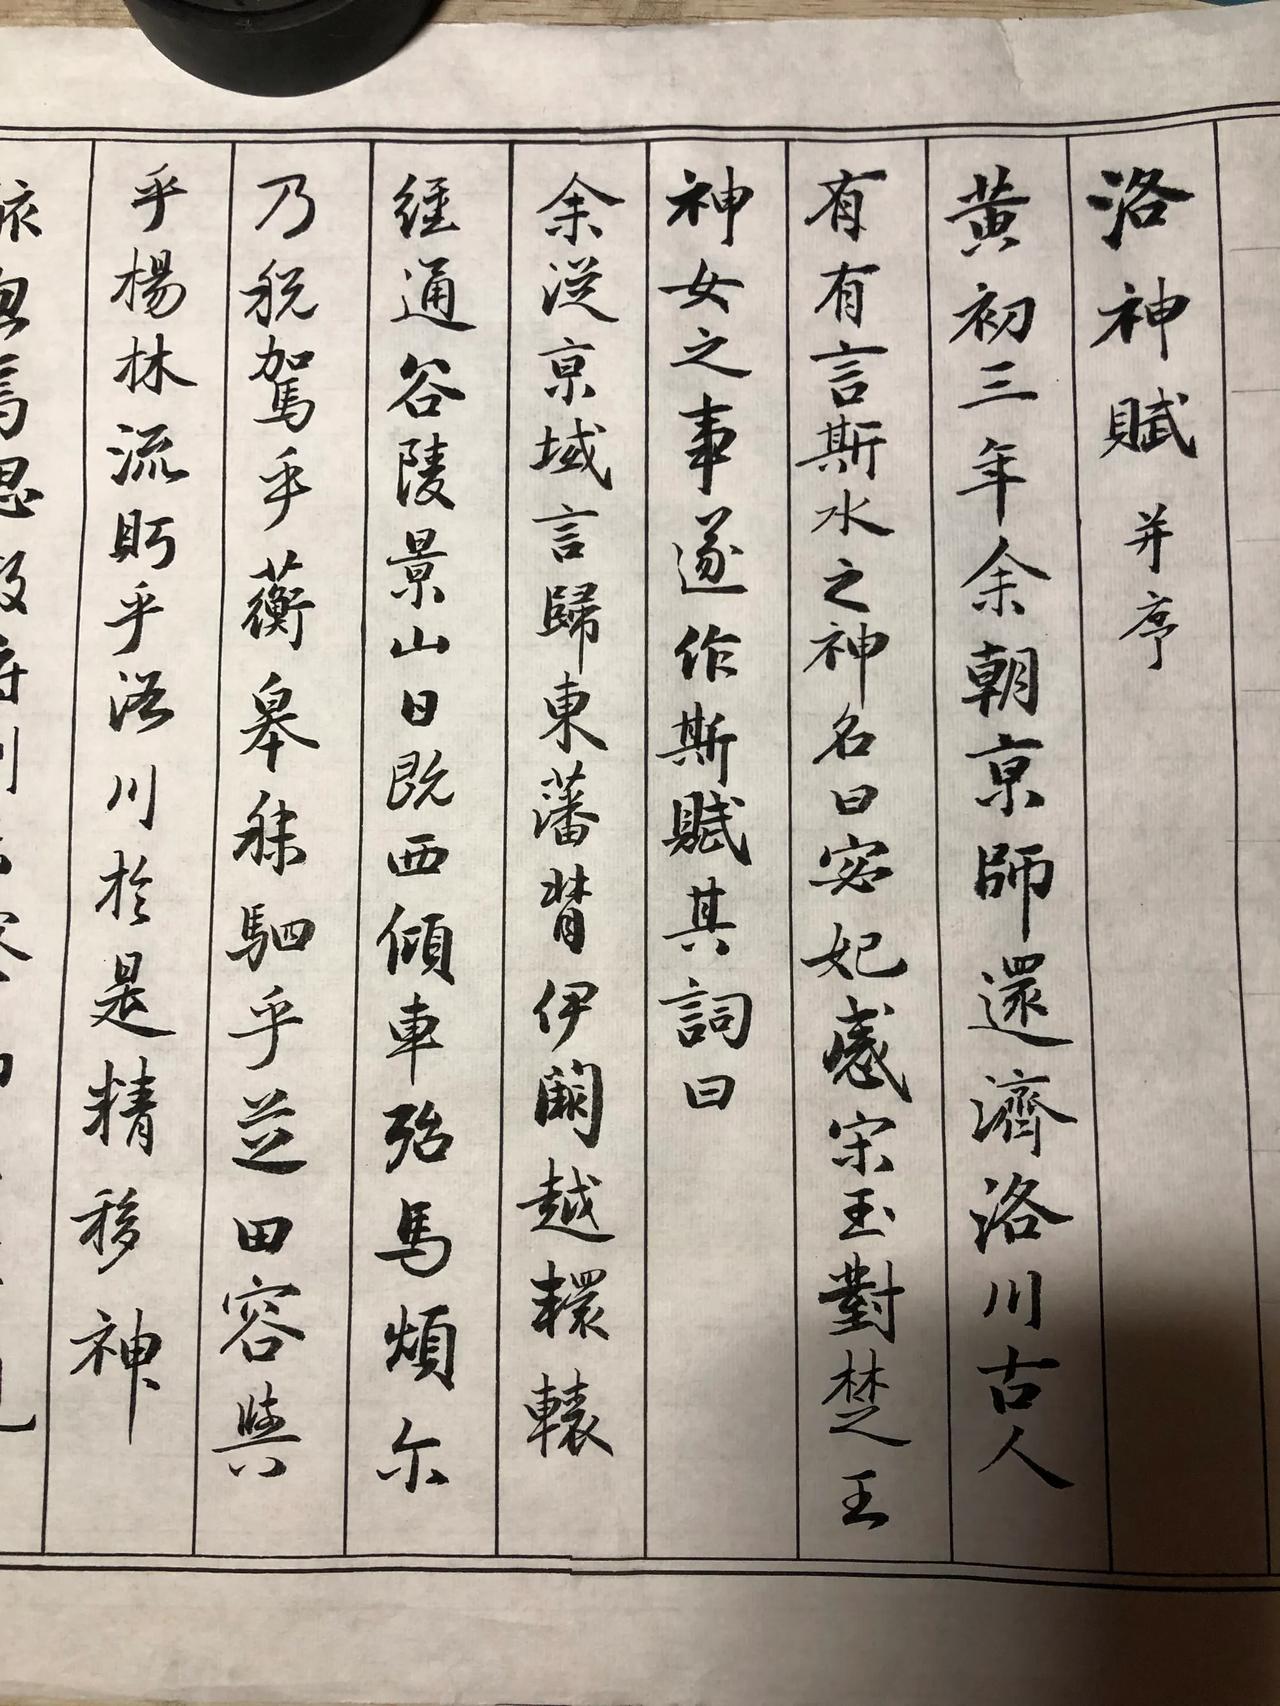 洛神賦 并序
黄初三年余朝京師還濟洛川古人
有有言斯水之神名曰宓妃感宋玉對楚王
神女之事遂作斯賦其詞曰
余從京域言歸東藩背伊闕越轘轅
經通谷陵景山日既西傾車殆馬煩尔
乃税駕乎蘅皋秣駟乎芝田容與
乎楊林流眄乎洛川於是精移神